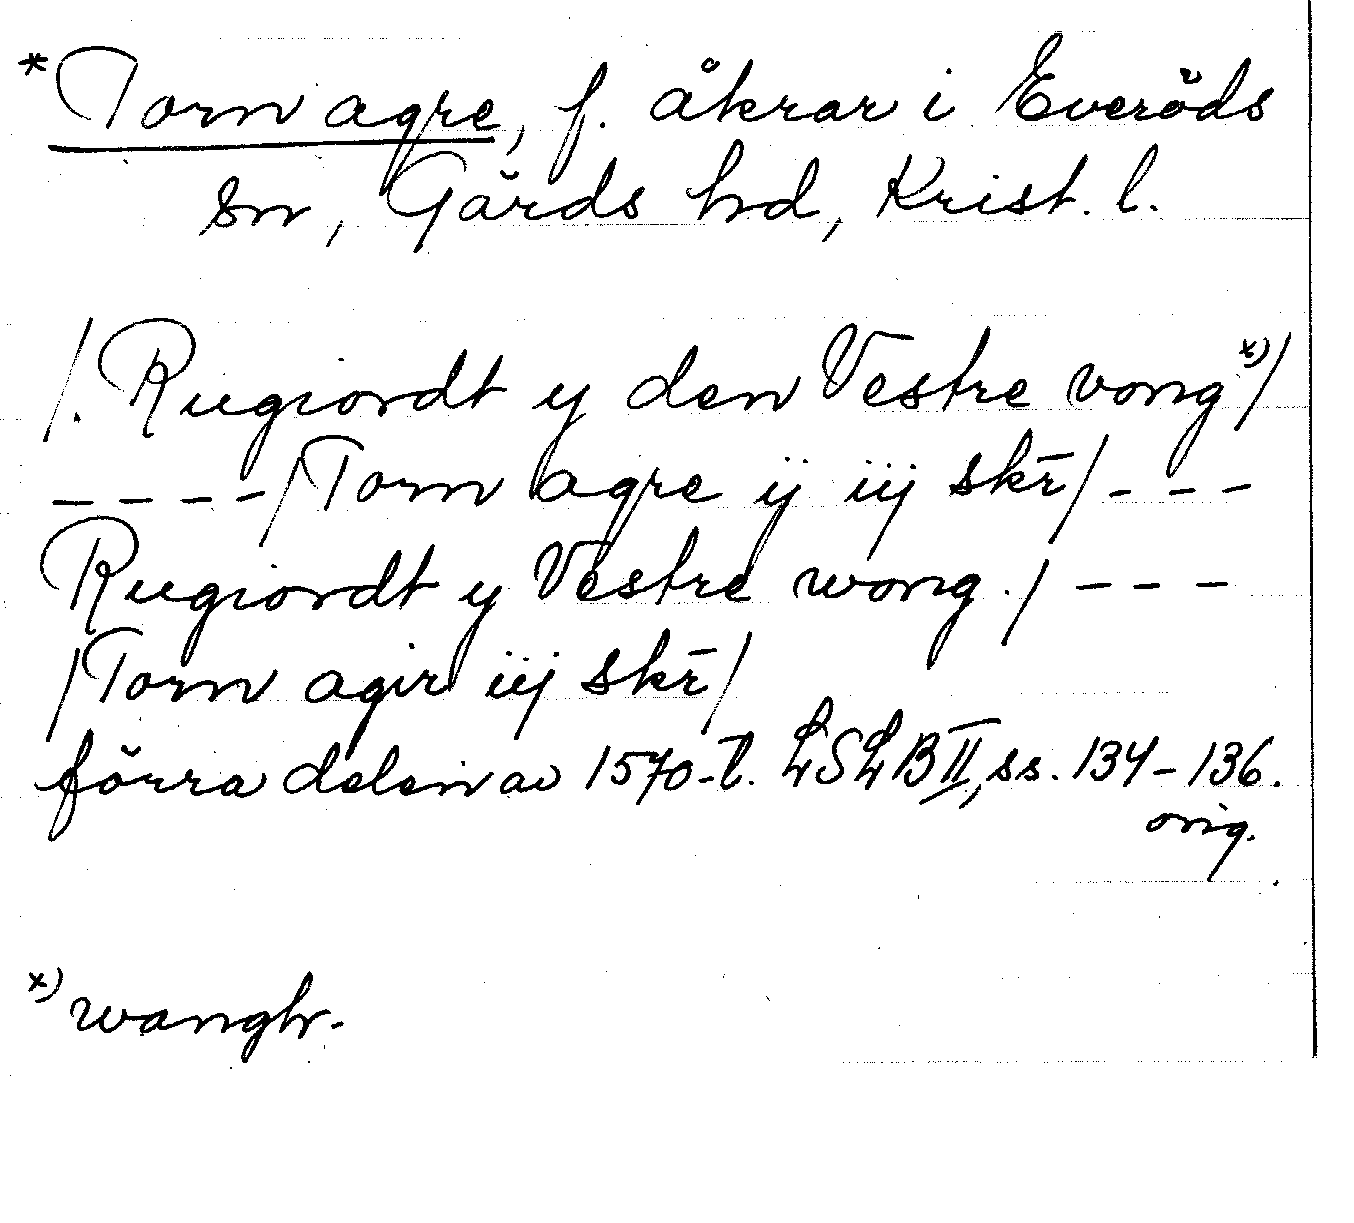 *Torn agre, f. åkrar i Everöds
sn, Gärds hd, Krist. l.
/. Rugiordt y den Vestre vong x)/
----/Torn agre ij iij skr̄/---
Rugiordt y Vestre wong ./ ---
/Torn agir iij skr̄/
förra delen av 1570-t. LSLB II, ss. 134-136.
orig.
x) wanghr.